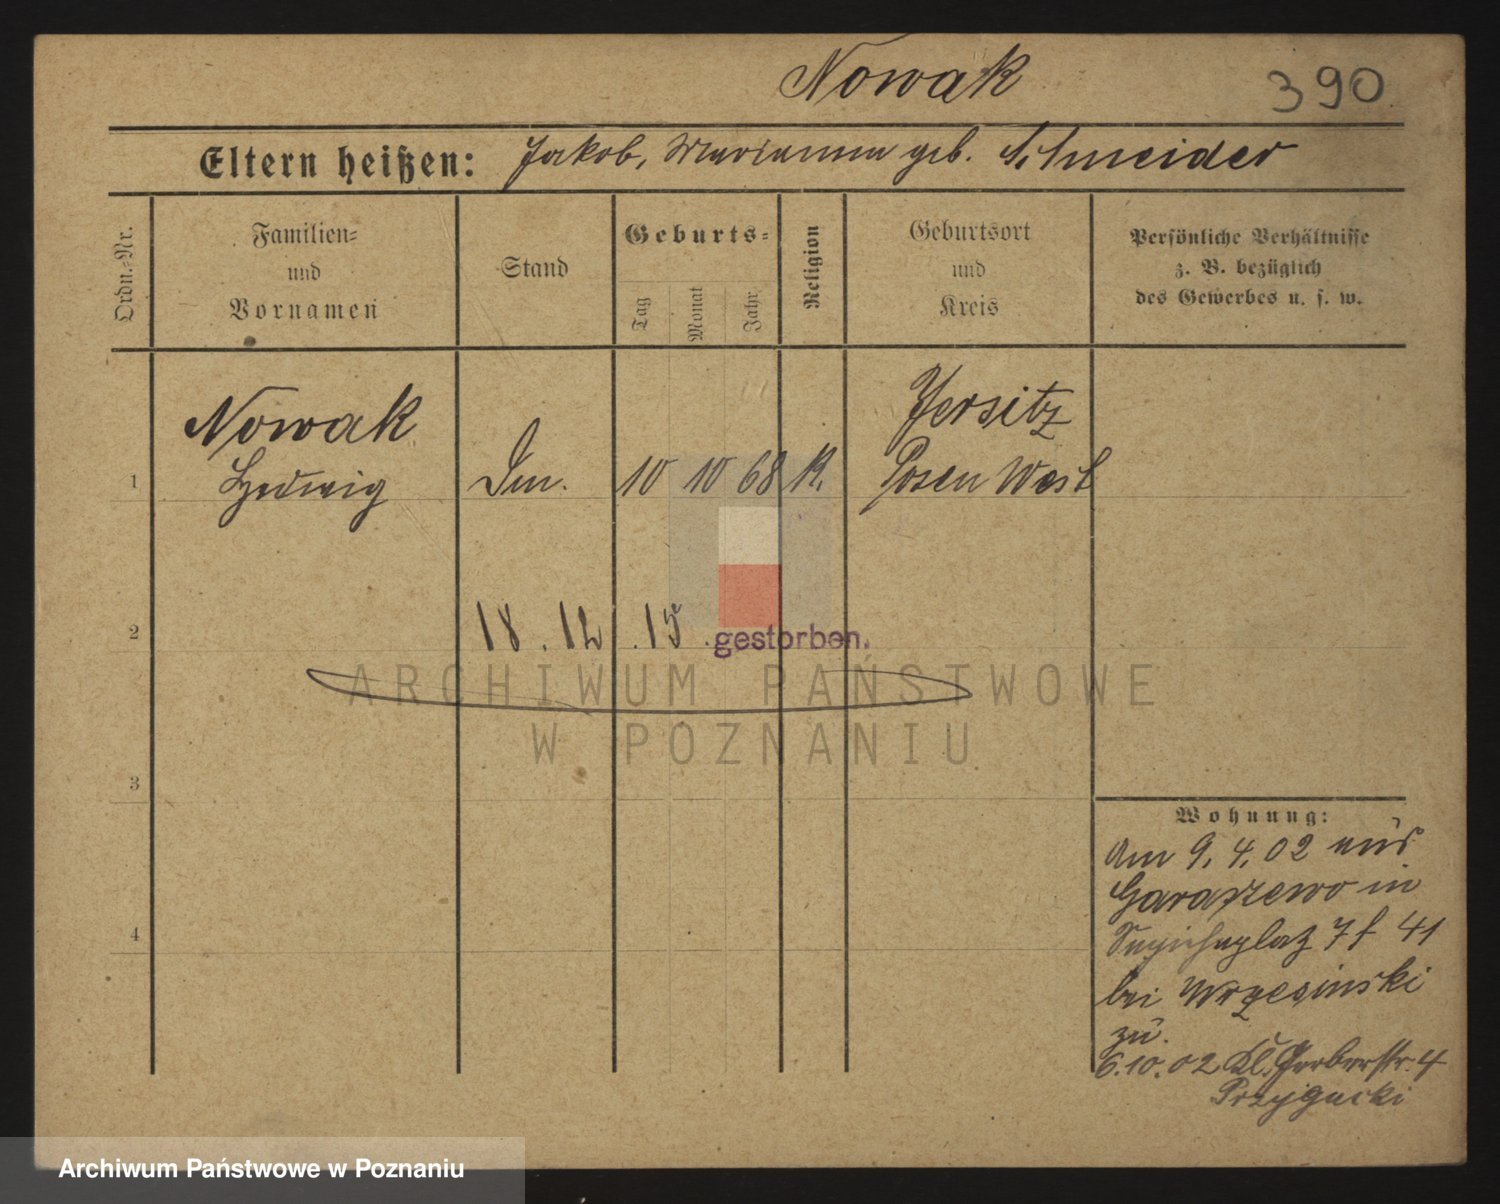 Nowak
390
Eltern heißen: Jakob, Marianna geb. Schneider
Ordn.-Nr.
Familien-
und
Vornamen
Stand
Geburts-
Tag
Monat
Jahr
Religion
Geburtsort
und
Kreis
Persönliche Verhältnisse
z. B. bezüglich
des Gewerbes u. s. w.
Nowak
Jersitz
1 Hedwig 10 10 68 K. Posen West
2 18. 12. 15. gestorben.
ARCHIWUM PAŃSTWOWE
W POZNANIU
3
Wohnung:
Am 9. 4. 02 aus
Garaszewo in
4
Sapiehaplatz 7 f 41
bei Wrzesinski
zu.
6.10.02 Kl. Gerberstr. 4
Przygucki
Archiwum Państwowe w Poznaniu